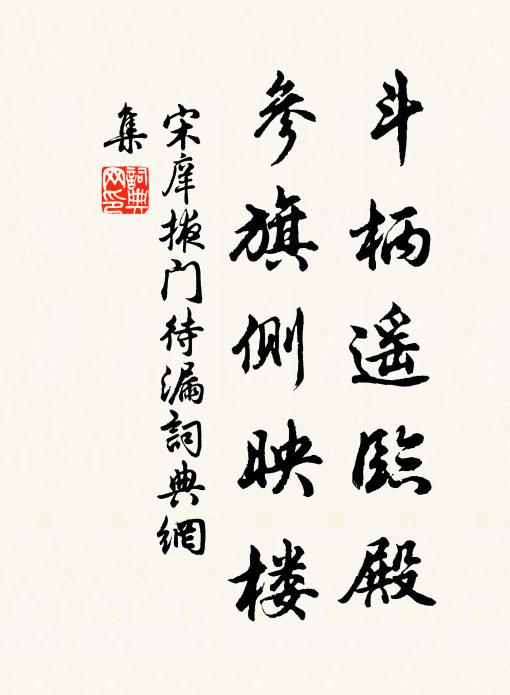 斗柄遥臨殿
參旗側映楼
宋庠掖门待漏詞典網
集
詞典
网印